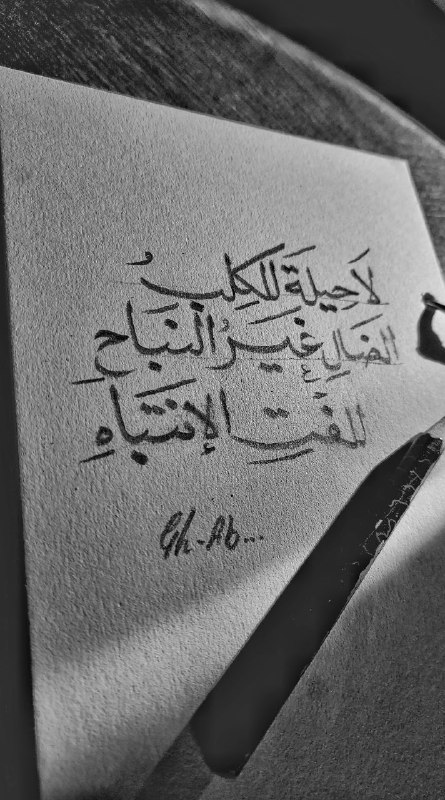 لَا حِيلَةَ لِلكَلِبِ
الضَالِ غَيَرُ النبَاحِ
لِلفتِ الإنتبَاهِ
Gh-Ab...